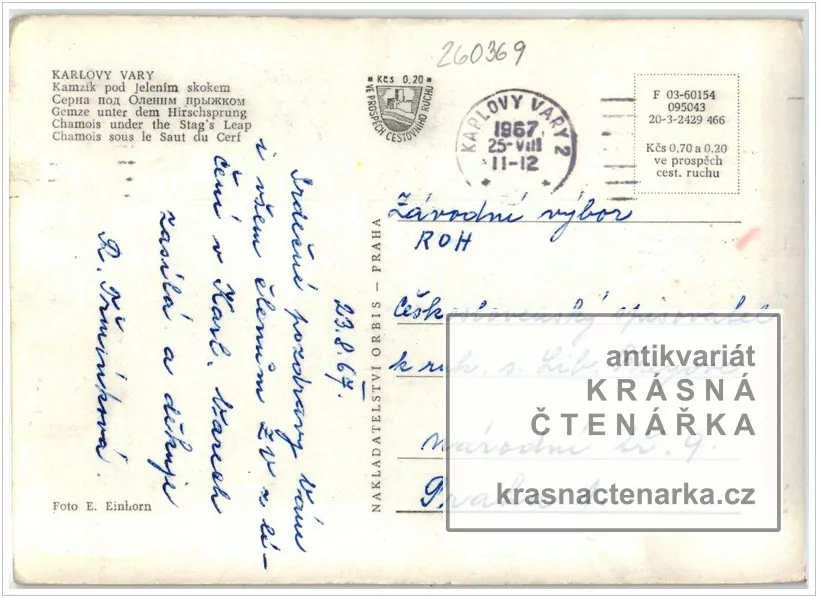 260369
KARLOVY VARY
Kamzík pod Jelením skokem
Серна под Оленим прыжком
Gemze unter dem Hirschsprung
Chamois under the Stag's Leap
Chamois sous le Saut du Cerf
Kčs 0,20
VE PROSPĚCH CESTOVNÍHO RUCHU
KARLOVY VARY 2
1967
25-VIII
11-12
F 03-60154
095043
20-3-2429 466
Kčs 0,70 a 0.20
ve prospěch
cest. ruchu
23.8.67.
Srdečné pozdravy Vám
i všem členům ZV z lé-
čení v Karl. Varech
zasílá a děkuje
NAKLADATELSTVÍ ORBIS — PRAHA
Závodní výbor
ROH
Československý spisovatel
k ruk. s. Lib.
Národní tř. 9.
Praha 1.
antikvariát
KRÁSNÁ
ČTENÁŘKA
krasnactenarka.cz
Foto E. Einhorn